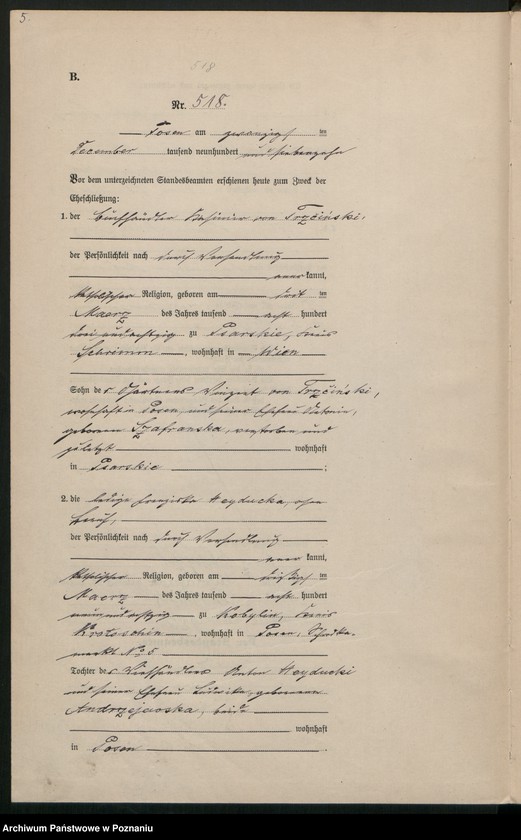 5.
518
B.
Nr. 518.
Posen am zwanzigsten
December tausend neunhundert und siebenzehn
Vor dem unterzeichneten Standesbeamten erschienen heute zum Zweck der
Eheschließung:
1. der Buchhändler Kasimir von Trzciński,
der Persönlichkeit nach durch Verhandlung
aner kannt,
katholischer Religion, geboren am
Maerz des Jahres tausend acht hundert
drei und achtzig zu Psarskie, Kreis
Schrimm, wohnhaft in Wien
Sohn des Gärtners Vinzent von Trzciński,
wohnhaft in Posen, und seiner Ehefrau
geborenen Szafranska, verstorben und
zuletzt wohnhaft
in Psarskie ;
2. die ledige Franziska Heyducka, ohne
Beruf,
der Persönlichkeit nach durch Verhandlung
aner kannt,
katholischer Religion, geboren am
Maerz des Jahres tausend acht hundert
neun und achtzig zu Kobylin, Kreis
Krotoschin, wohnhaft in Posen,
markt No 5
Tochter des Viehhändlers Anton Heyducki
und seiner Ehefrau Ludwika, geborenen
Andrzejewska, beide
wohnhaft
in Posen .
Archiwum Państwowe w Poznaniu
szukajwarchiwach.pl